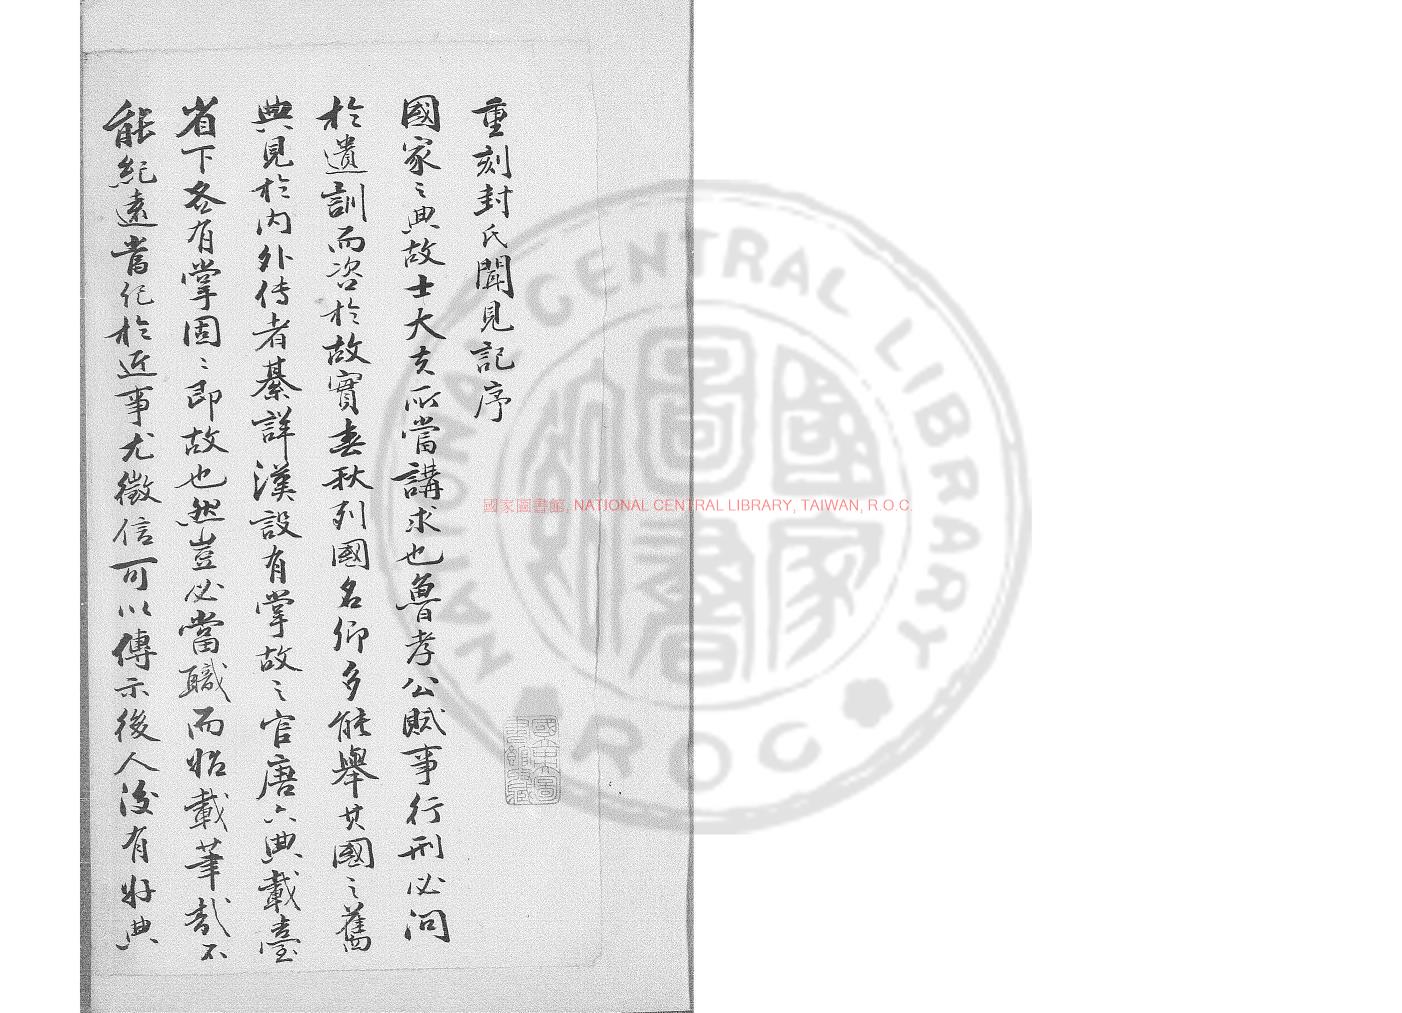 重刻封氏聞見記序
國家之典故士大夫所當講求也魯孝公賦事行刑必問
於遺訓而咨於故實春秋列國名卿多能舉其國之舊
典見於內外傳者綦詳漢設有掌故之官唐六典載臺
省下各有掌固〻即故也然豈必當職而始載筆哉不
能紀遠當紀於近事尤徵信可以傳示後人沒有好典
國家圖書館, NATIONAL CENTRAL LIBRARY, TAIWAN, R.O.C.
NATIONAL CENTRAL LIBRARY
ROC
國家圖書